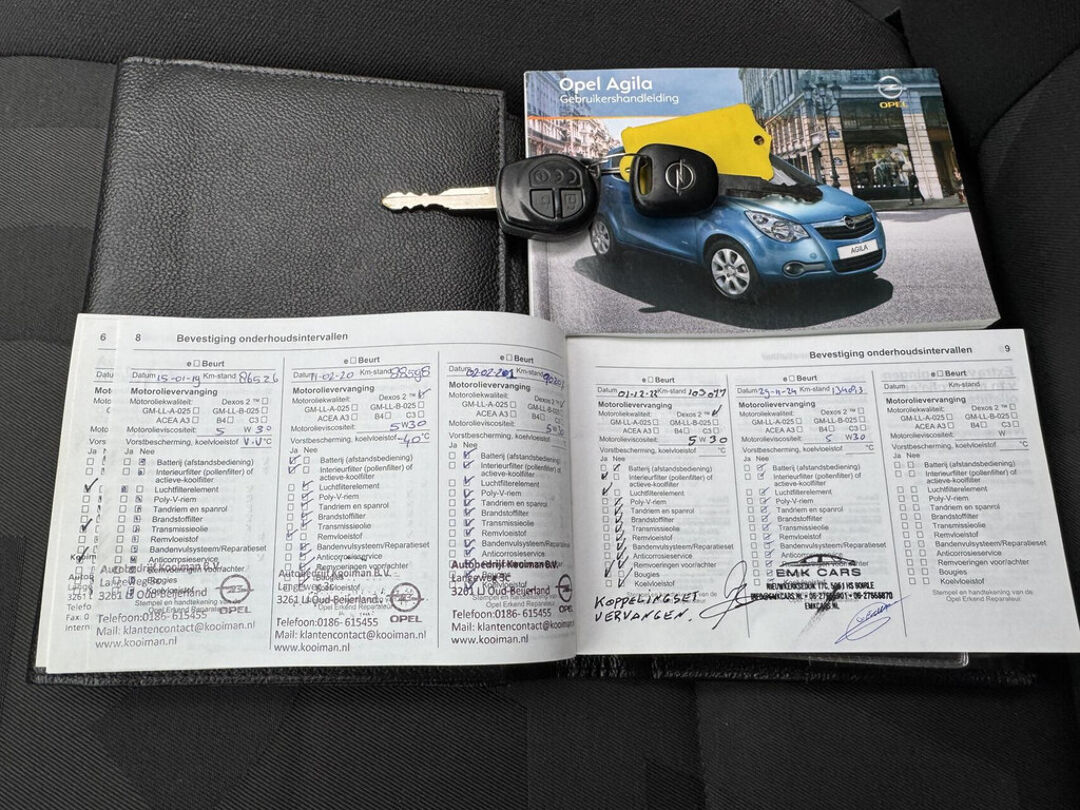 Opel Agila
Gebruikershandleiding
OPEL
AGILA
6 8 Bevestiging onderhoudsintervallen
e □ Beurt
Datum 15-01-19 Km-stand 86526
Motorolievervanging
Motoroliekwaliteit: Dexos 2 ™ □
GM-LL-A-025 □ GM-LL-B-025 □
ACEA A3 □ B4 □ C3 □
Motorolieviscositeit: 5 W 30
Vorstbescherming, koelvloeistof °C
Ja Nee
Batterij (afstandsbediening)
Interieurfilter (pollenfilter) of
actieve-koolfilter
Luchtfilterelement
Poly-V-riem
Tandriem en spanrol
Brandstoffilter
Transmissieolie
Remvloeistof
Bandenvulsysteem/Reparatieset
Anticorrosieservice
Remvoeringen voor/achter
Bougies
Koelvloeistof
Autobedrijf Kooiman B.V.
Langeweg 3c
3261 LJ Oud-Beijerland
Stempel en handtekening van de
Opel Erkend Reparateur
OPEL
Telefoon:0186-615455
Mail: klantencontact@kooiman.nl
www.kooiman.nl
e □ Beurt
Datum 11-02-20 Km-stand 88598
Motorolievervanging
Motoroliekwaliteit: Dexos 2 ™
GM-LL-A-025 □ GM-LL-B-025 □
ACEA A3 □ B4 □ C3 □
Motorolieviscositeit: 5W30
Vorstbescherming, koelvloeistof -40 °C
Ja Nee
Batterij (afstandsbediening)
Interieurfilter (pollenfilter) of
actieve-koolfilter
Luchtfilterelement
Poly-V-riem
Tandriem en spanrol
Brandstoffilter
Transmissieolie
Remvloeistof
Bandenvulsysteem/Reparatieset
Anticorrosieservice
Remvoeringen voor/achter
Bougies
Koelvloeistof
Autobedrijf Kooiman B.V.
Langeweg 3c
3261 LJ Oud-Beijerland
OPEL
Telefoon:0186-615455
Mail: klantencontact@kooiman.nl
www.kooiman.nl
e □ Beurt
Datum 02-02-201 Km-stand
Motorolievervanging
Motoroliekwaliteit: Dexos 2 ™
GM-LL-A-025 □ GM-LL-B-025 □
ACEA A3 □ B4 □ C3 □
Motorolieviscositeit: 5 30
Vorstbescherming, koelvloeistof °C
Ja Nee
Batterij (afstandsbediening)
Interieurfilter (pollenfilter) of
actieve-koolfilter
Luchtfilterelement
Poly-V-riem
Tandriem en spanrol
Brandstoffilter
Transmissieolie
Remvloeistof
Bandenvulsysteem/Reparatieset
Anticorrosieservice
Remvoeringen voor/achter
Koelvloeistof
Autobedrijf Kooiman B.V.
Langeweg 3c
3261 LJ Oud-Beijerland
OPEL
Telefoon:0186-615455
Mail: klantencontact@kooiman.nl
www.kooiman.nl
Bevestiging onderhoudsintervallen 9
e □ Beurt
Datum 01-12-22 Km-stand 103077
Motorolievervanging
Motoroliekwaliteit: Dexos 2 ™
GM-LL-A-025 □ GM-LL-B-025 □
ACEA A3 □ B4 □ C3 □
Motorolieviscositeit: 5 W 30
Vorstbescherming, koelvloeistof °C
Ja Nee
Batterij (afstandsbediening)
Interieurfilter (pollenfilter) of
actieve-koolfilter
Luchtfilterelement
Poly-V-riem
Tandriem en spanrol
Brandstoffilter
Transmissieolie
Remvloeistof
Bandenvulsysteem/Reparatieset
Anticorrosieservice
Remvoeringen voor/achter
Bougies
Koelvloeistof
KOPPELINGSET
VERVANGEN.
e □ Beurt
Datum 29-11-24 Km-stand
Motorolievervanging
Motoroliekwaliteit: Dexos 2 ™ □
GM-LL-A-025 □ GM-LL-B-025 □
ACEA A3 □ B4 □ C3 □
Motorolieviscositeit: 5 W30
Vorstbescherming, koelvloeistof °C
Ja Nee
Batterij (afstandsbediening)
Interieurfilter (pollenfilter) of
actieve-koolfilter
Luchtfilterelement
Poly-V-riem
Tandriem en spanrol
Brandstoffilter
Transmissieolie
Remvloeistof
Bandenvulsysteem/Reparatieset
Anticorrosieservice
EMK CARS
EMKCARS.NL
e □ Beurt
Datum Km-stand
Motorolievervanging
Motoroliekwaliteit: Dexos 2 ™ □
GM-LL-A-025 □ GM-LL-B-025 □
ACEA A3 □ B4 □ C3 □
Motorolieviscositeit: W
Vorstbescherming, koelvloeistof °C
Ja Nee
Batterij (afstandsbediening)
Interieurfilter (pollenfilter) of
actieve-koolfilter
Luchtfilterelement
Poly-V-riem
Tandriem en spanrol
Brandstoffilter
Transmissieolie
Remvloeistof
Bandenvulsysteem/Reparatieset
Anticorrosieservice
Remvoeringen voor/achter
Bougies
Koelvloeistof
Stempel en handtekening van de
Opel Erkend Reparateur